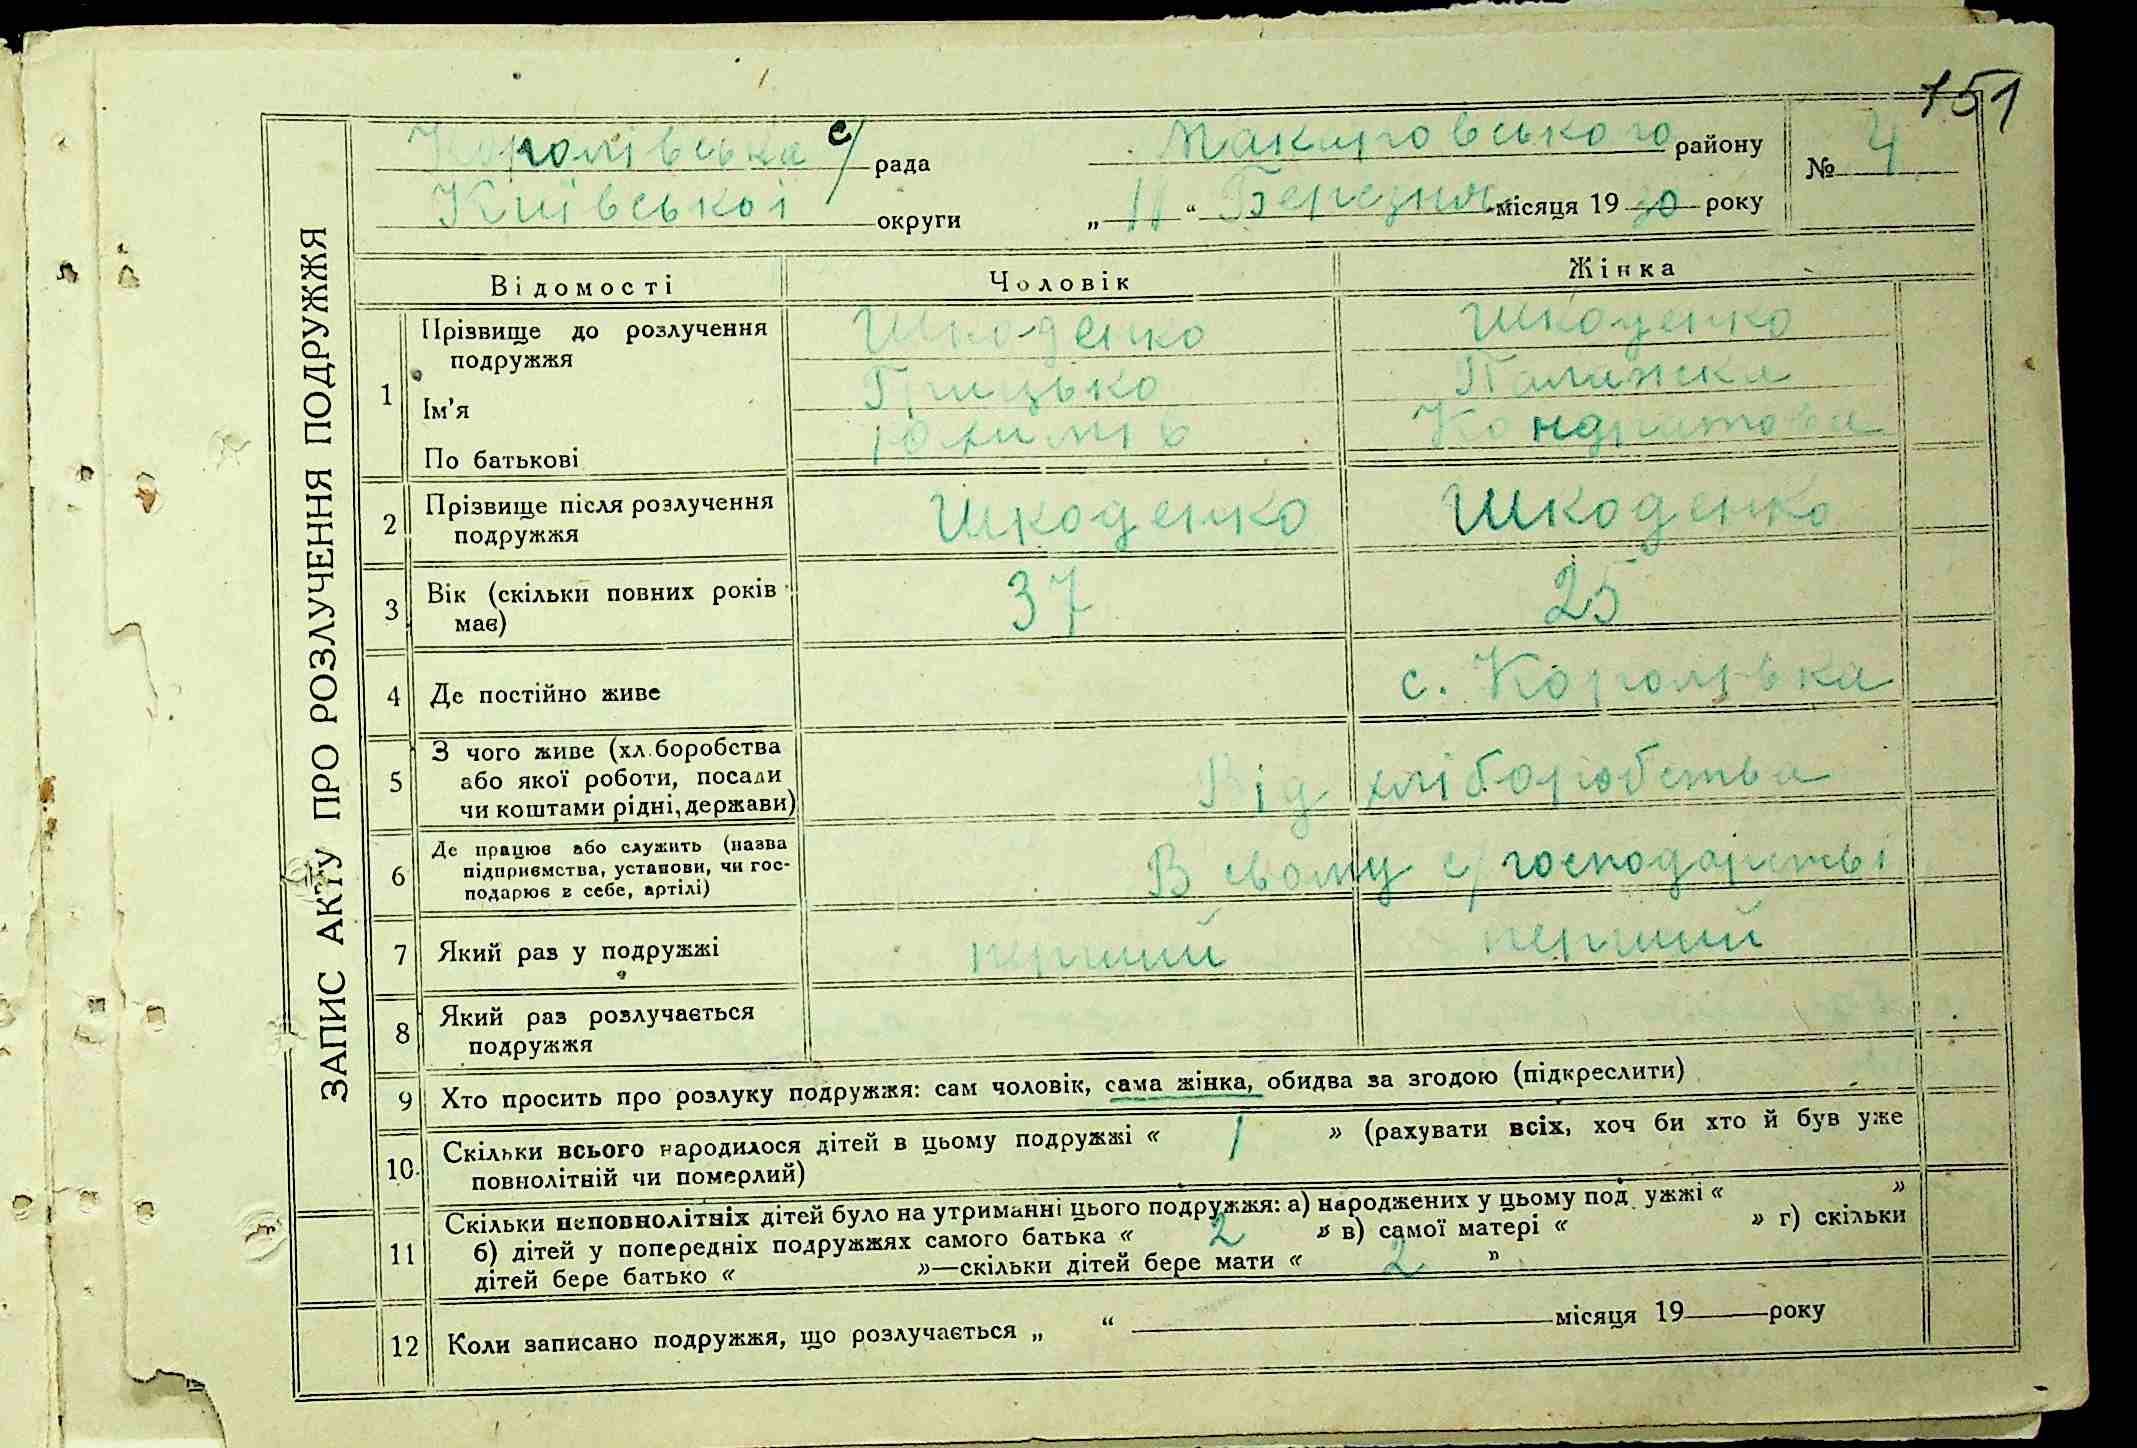 151
Королівська с/ рада Макарівського району № 4
Київської округи „ 11 “ Березня місяця 19 30 року
ЗАПИС АКТУ ПРО РОЗЛУЧЕННЯ ПОДРУЖЖЯ
Відомості Чоловік Жінка
1 Прізвище до розлучення Шкоденко Шкоденко
подружжя
Ім'я Грицько Палажска
По батькові Юхимів Кондратова
2 Прізвище після розлучення Шкоденко Шкоденко
подружжя
3 Вік (скільки повних років 37 25
має)
4 Де постійно живе с. Королівка
5 З чого живе (хл.боробства
або якої роботи, посади Від хліборобства
чи коштами рідні, держави)
6 Де працює або служить (назва
підприємства, установи, чи гос- В свому с/господарстві
подарює в себе, артілі)
7 Який раз у подружжі перший перший
8 Який раз розлучається
подружжя
9 Хто просить про розлуку подружжя: сам чоловік, сама жінка, обидва за згодою (підкреслити)
10 Скільки всього народилося дітей в цьому подружжі « 1 » (рахувати всіх, хоч би хто й був уже
повнолітній чи померлий)
11 Скільки неповнолітніх дітей було на утриманні цього подружжя: а) народжених у цьому под ужжі « »
б) дітей у попередніх подружжях самого батька « 2 » в) самої матері « » г) скільки
дітей бере батько « »—скільки дітей бере мати « 2 »
12 Коли записано подружжя, що розлучається „ “ місяця 19 року